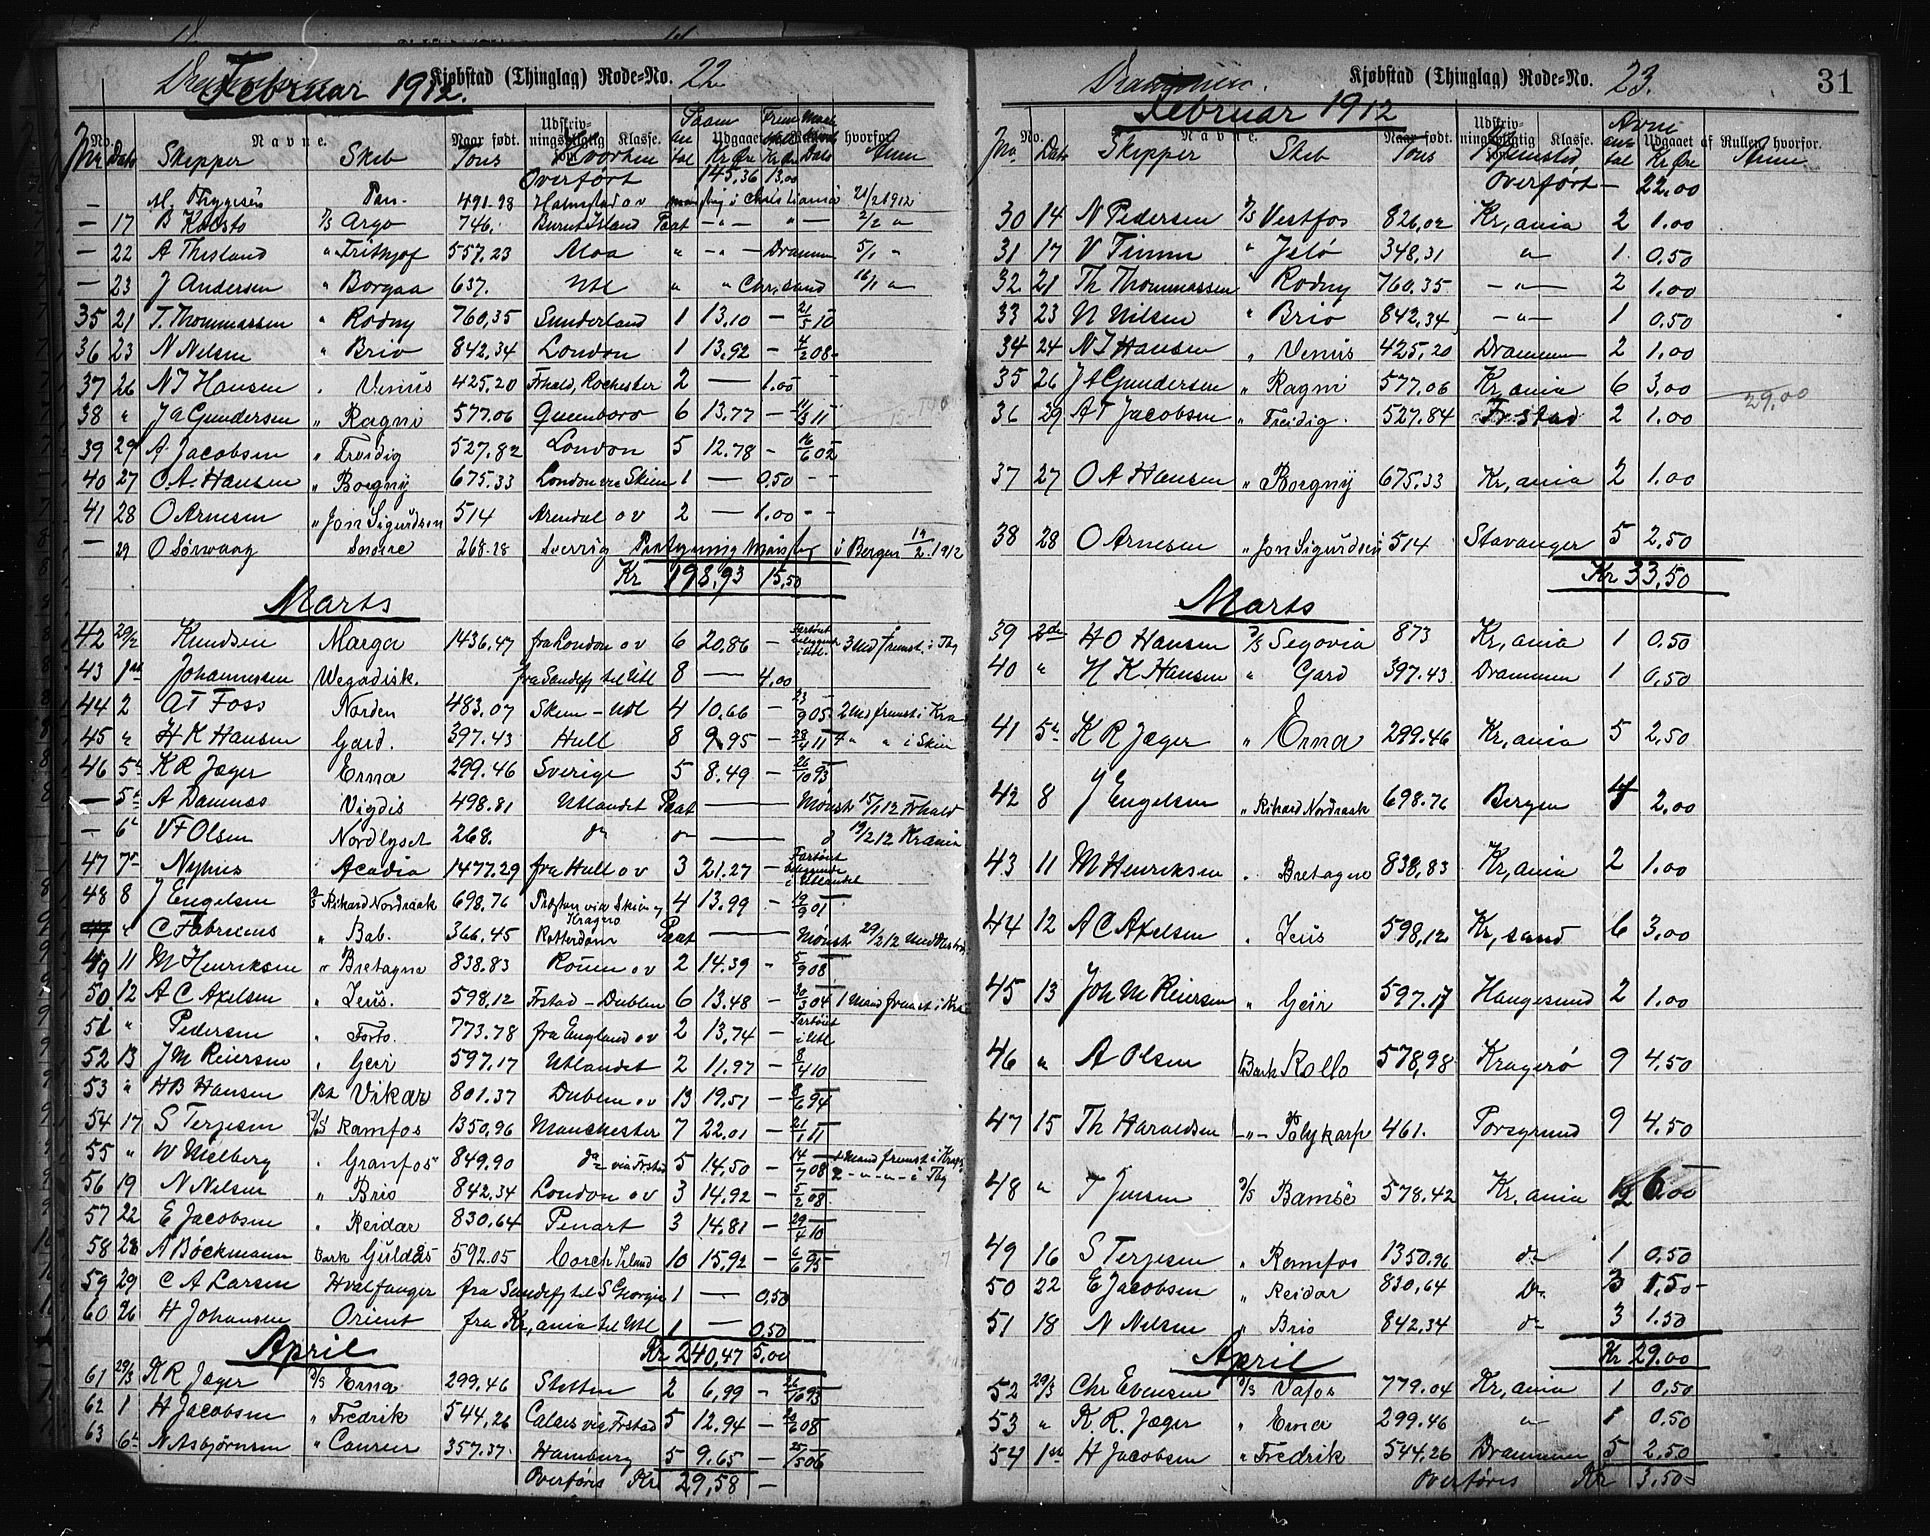 Februar 1912. Kjøbstad (Thinglag) Rode-No. 22
No. Navne. Naar født. Udskrivningspligtig til Klasse. Udgaaet hvorfor.
Nr Dato Skipper Skib Tons Hvorhen Antal Kr Øre Kr Øre Dato Anm
Overført 145,36 13,00
— M. Trygesen Pan 491.28 Halmstad o v mønstring i Christiania 21/2 1912
— 17 B Kaasto D/S Argo 746. Burntisland Paat — " — " — 2/2 "
— 22 A Thisland " Frithjof 557.23 Moa " — " — Drammen 5/1 "
— 23 J Andersen " Borgaa 637. Utl " " Chr.sand 16/1 "
35 21 T. Thommassen " Rodny 760,35 Sunderland 1 13,10 — 21/5 10
36 23 N Nelsen " Brio 842,34 London 1 13,92 — 4/2 08
37 26 N J Hansen " Venus 425.20 Frhald, Rochester 2 — 1.00 —
38 " J A Gundersen " Ragni 577.06 Queenboro 6 13.77 — 11/3 11
39 29 A Jacobsen " Freidig 527.82 London 5 12.78 — 16/6 02
40 27 O. A. Hansen " Borgny 675.33 London via Skien 1 — 0,50 — —
41 28 O Arnesen " Jon Sigurdsøn 514 Arendal o v 2 — 1.00 — —
— 29 O Sørvaag Sverre 268.28 Sverrig Paategning Mønstrg i Bergen 19/2 1912
Kr 198,93 15,50
Marts
42 29/2 Knudsen Marga 1436.47 fra London o v 6 20,86 — Fartøiet beliggende i Utl. 3 Md frmst. i Tbg
43 1ste Johannessen Wegadisk. fra Sandefj til Utl 8 — 4,00
44 2 A T Foss Norden 483.07 Skien - Utl 4 10,66 — 23/9 05 2 Md frmst i Kra
45 " H K Hansen Gard. 397.43 Hull 8 9,95 — 28/4 11 4 " " i Skien
46 5te K R Jæger Erna 299.46 Sverige 5 8.49 — 26/10 93
— 5te A Damnæs Vigdis 498.81 Utlandet Paat — Mønstr 15/1 12 Frhald
— 6te V F Olsen Nordlyset 268. do do — d 19/2 12 Kr.ania
47 7de Nyhus Acadia 1477.29 fra Hull o v 3 21.27 — Fartøiet beliggende i Utlandet
48 8 J Engelsen D/S Rikard Nordraak 698.76 via Skien og Kragerø 4 13.99 — 19/9 01
" C Fabricius " Bab. 366.45 Rotterdam Paat — Mønstr 29/2 12
49 11 M Henriksen " Bretagne 838.83 Rouen o v 2 14.39 — 5/9 08
50 12 A C Axelsen " Zeus. 598,12 Frstad - Dublin 6 13.48 — 30/3 04 1 Mand frmst i Kra
51 " Pedersen " Forto. 773.78 fra England o v 2 13,74 — Fartøiet i Utl
52 13 J M Reiersen " Geir 597,17 Utlandet 2 11.97 — 8/4 10
53 " H B Hansen Bk Vikar 801.37 Dublin o v 13 19.51 — 8/6 94
54 17 S Terjesen D/S Ramfos 1350,96 Manchester 7 22.01 — 21/1 11
55 " W Melberg " Granfos 849.90 do via Frstad 5 14,50 — 14/7 08 1 Mand frmst i Krag. 2 — " — " — i Tbg
56 19 N Nelsen " Brio 842,34 London o v 3 14.92 — 5/2 08
57 22 E Jacobsen " Reidar 830.64 Penart 3 14.81 — 29/4 10
58 28 A Bøckmann Bark Guldaas 592.05 Corck Irland 10 15,92 — 6/6 95
59 29 C A Larsen Hvalfanger fra Sandefj til S Georgia 1 — 0,50
60 26 H Johansen Orient fra Kr,ania til Utl 1 — 0,50
Kr 240,47 5,00
April
61 29/3 K R Jæger D/S Erna 299.46 Stettin 2 6,99 — 26/10 93
62 1 H Jacobsen " Fredrik 544,26 Calais via Frstad 5 12.94 — 20/6 08
63 6te N Asbjørnsen " Courier 357.37. Hamburg 5 9.65 — 25/5 06
Overføres Kr 29,58 —
Drammen. Kjøbstad (Thinglag) Rode-No. 23. 31
Februar 1912
No. Navne. Naar født. Udskrivningspligtig til Klasse. Udgaaet af Rullen, hvorfor.
No Dat Skipper Skib Tons Hjemsted Antal Kr Øre Anm
Overført — 22.00
30 14 N Pedersen D/S Vestfos 826,02 Kr,ania 2 1.00
31 17 V Timm " Jslø 348,31 " 1 0,50
32 21 Th Thommassen " Rodny 760.35 — " — 2 1.00
33 23 N Nilsen " Brio 842,34 — " — 1 0,50
34 24 N J Hansen " Venus 425,20 Drammen 2 1.00
35 26 J A Gundersen " Ragni 577.06 Kr,ania 6 3,00
29,00
36 29 A T Jacobsen " Freidig. 527.84 Frstad 2 1.00
37 27 O A Hansen " Borgny 675.33 Kr,ania 2 1.00
38 28 O Arnesen " Jon Sigurdsøn 514 Stavanger 5 2,50
Kr 33,50
Marts
39 2de H O Hansen D/S Segovia 873 Kr,ania 1 0,50
40 " H K Hansen " Gard 397.43 Drammen 1 0,50
41 5te K R Jæger " Erna 299.46 Kr,ania 5 2,50
42 8 J Engelsen " Rikard Nordraak 698.76 Bergen 4 2,00
43 11 M Henriksen " Bretagne 838,83 Kr,ania 2 1.00
44 12 A C Axelsen " Zeus 598,12 Kr,sand 6 3,00
45 13 Joh M Reiersen " Geir 597.17 Haugesund 2 1.00
46 " A Olsen Bark Rollo 578,98 Kragerø 9 4,50
47 15 Th Haraldsen — " — Polykarp 461. Porsgrund 9 4.50
48 " T Jensen D/S Bamse 578.42 Kr,ania 12 6.00
49 16 S Terjesen " Ramfos 1350.96 do 1 0,50
50 22 E Jacobsen " Reidar 830,64 Do 3 1,50
51 18 N Nelsen " Brio 842,34 do 3 1.50
Kr 29.00
April
52 29/3 Chr Evensen D/S Vafos 779.04 Kr,ania 1 0,50
53 " K. R. Jæger " Erna 299.46 " 1 0,50
54 1ste H Jacobsen " Fredrik 544.26 Drammen 5 2,50
Overføres Kr 3,50